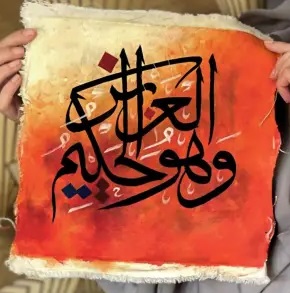 وهو العزيز الحكيم